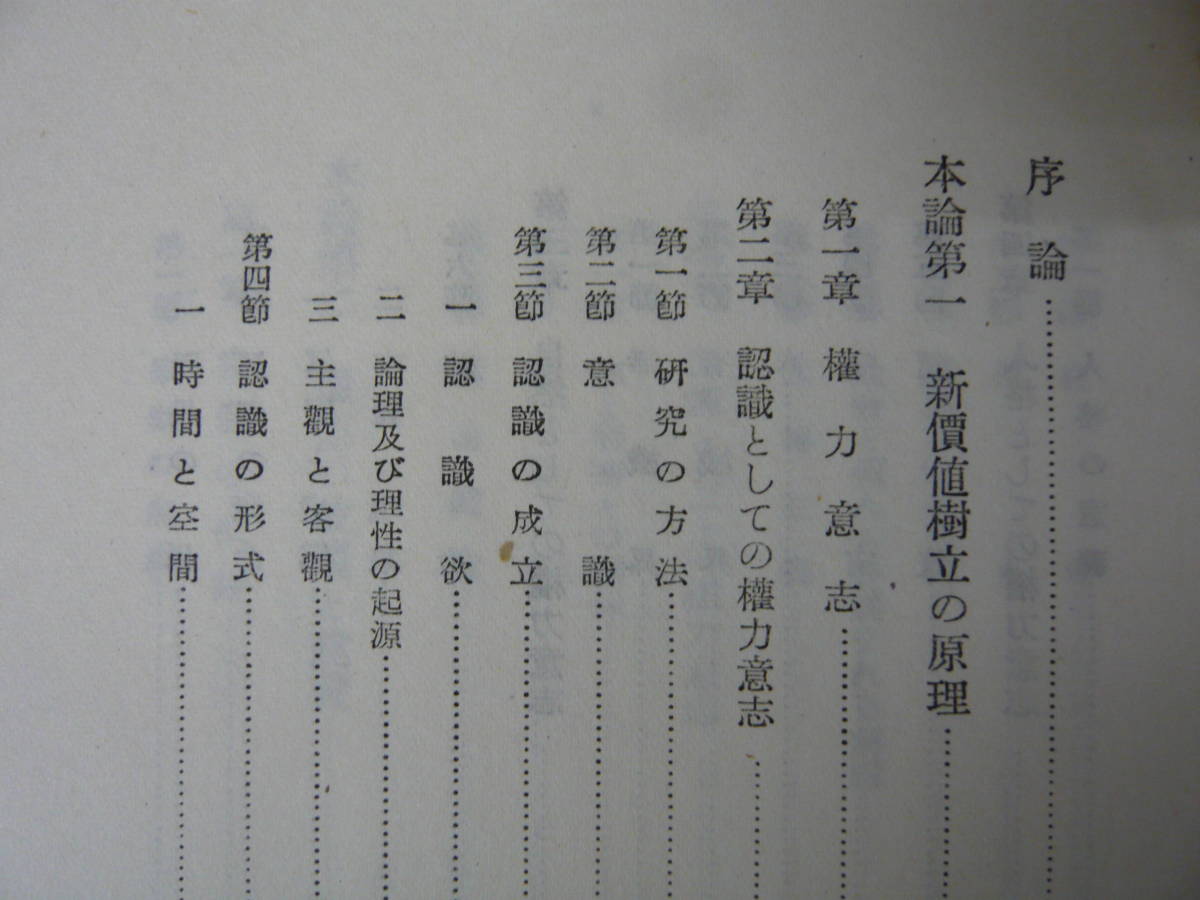 序論……………………
本論第一 新價値樹立の原理……………
第一章 權力意志……………
第二章 認識としての權力意志……………
第一節 研究の方法……………
第二節 意識……………
第三節 認識の成立……………
一 認識欲……………
二 論理及び理性の起源……………
三 主觀と客觀……………
第四節 認識の形式……………
一 時間と空間……………